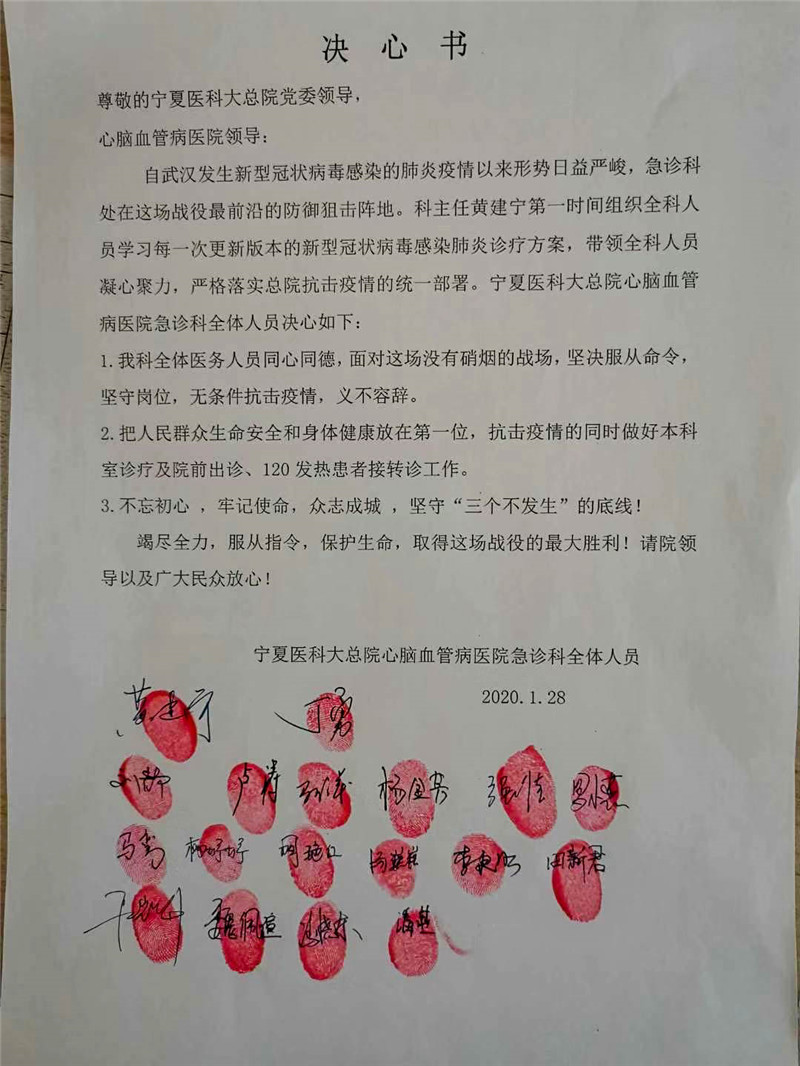 决 心 书
尊敬的宁夏医科大总院党委领导，
心脑血管病医院领导：
自武汉发生新型冠状病毒感染的肺炎疫情以来形势日益严峻，急诊科
处在这场战役最前沿的防御狙击阵地。科主任黄建宁第一时间组织全科人
员学习每一次更新版本的新型冠状病毒感染肺炎诊疗方案，带领全科人员
凝心聚力，严格落实总院抗击疫情的统一部署。宁夏医科大总院心脑血管
病医院急诊科全体人员决心如下：
1.我科全体医务人员同心同德，面对这场没有硝烟的战场，坚决服从命令，
坚守岗位，无条件抗击疫情，义不容辞。
2.把人民群众生命安全和身体健康放在第一位，抗击疫情的同时做好本科
室诊疗及院前出诊、120 发热患者接转诊工作。
3.不忘初心 ，牢记使命，众志成城 ，坚守“三个不发生”的底线！
竭尽全力，服从指令，保护生命，取得这场战役的最大胜利！请院领
导以及广大民众放心！
宁夏医科大总院心脑血管病医院急诊科全体人员
2020.1.28
黄建宁 丁勇
卢涛 强佳
柳婷婷 田新君